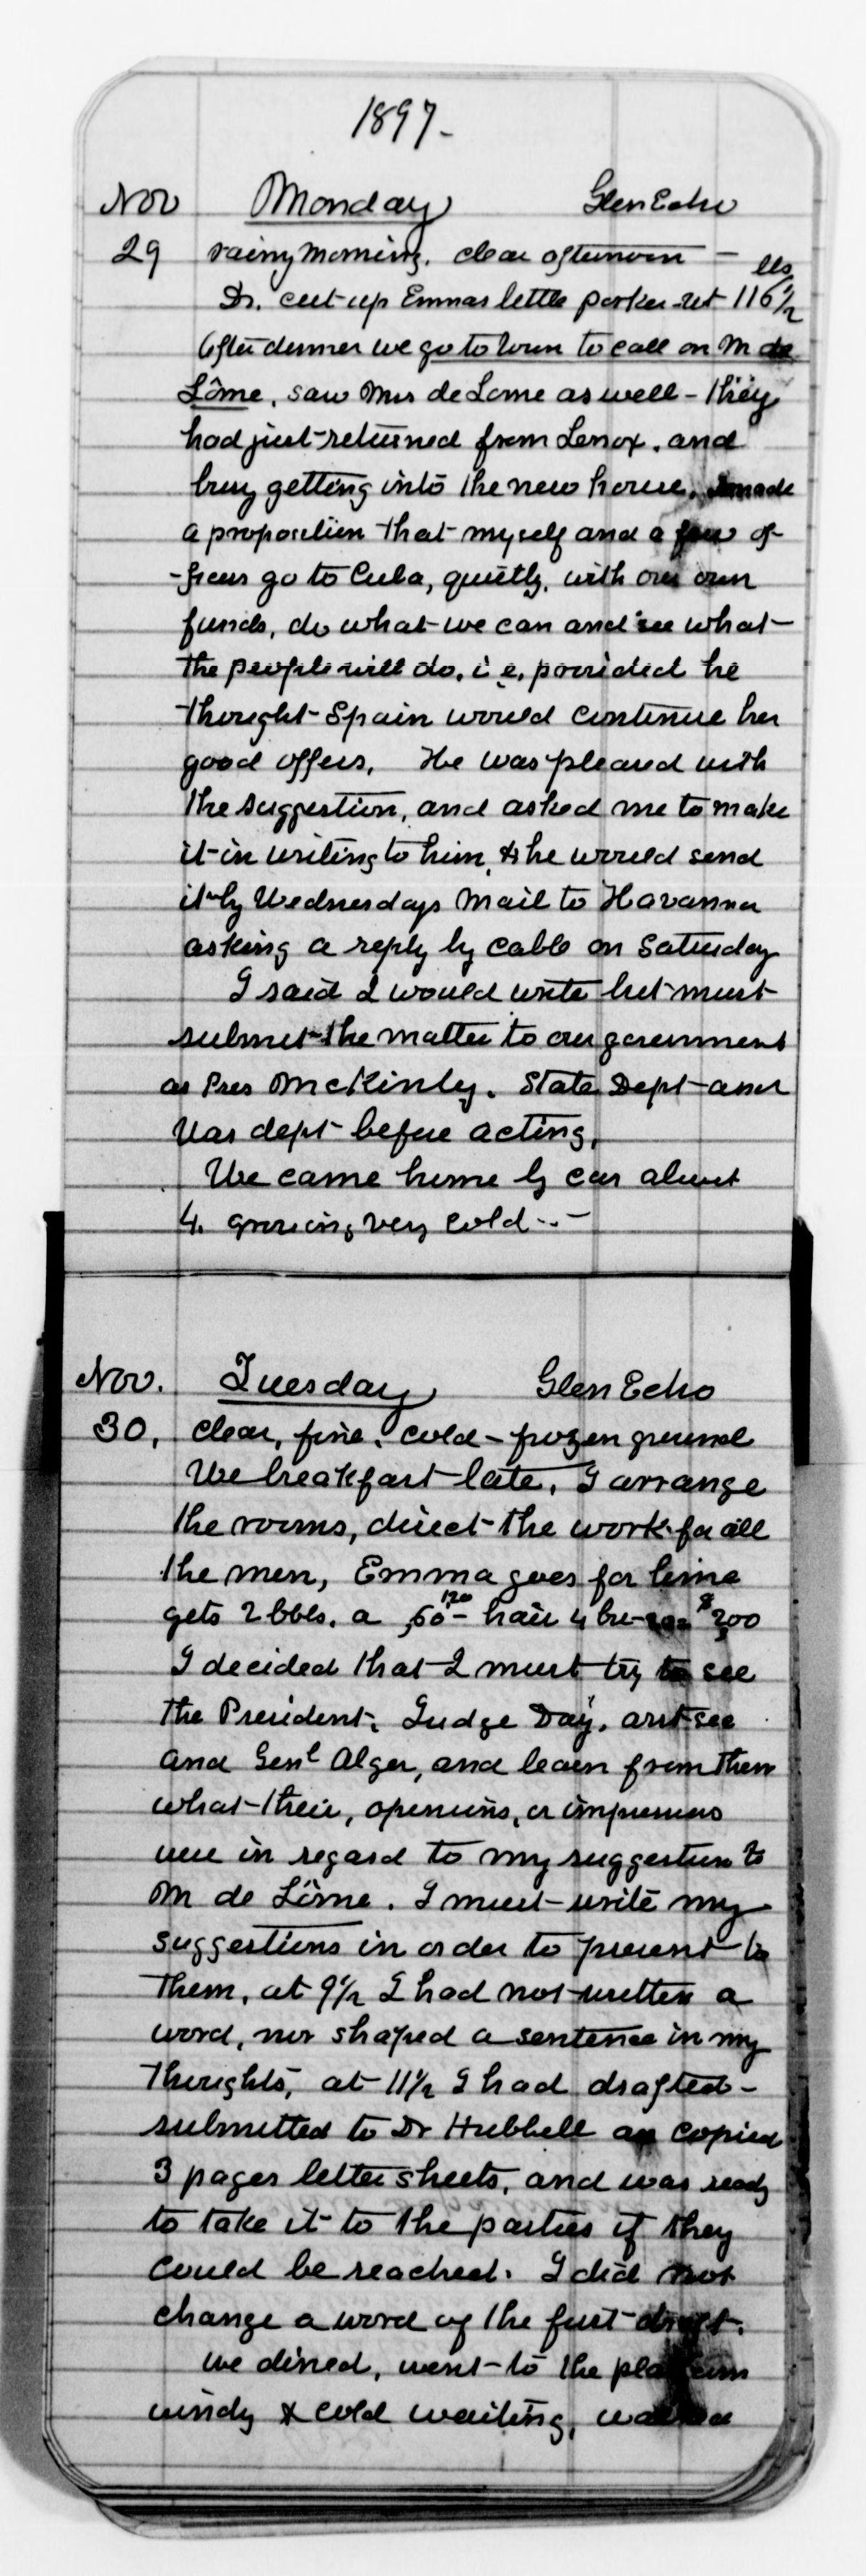 1897-
Nov Monday Glen Echo
29 rainy morning. clear afternoon -
lbs
Dr. cut up Emmas little porker - wt 116 1/2
After dinner we go to town to call on M de
Lôme, saw Mrs de Lome as well - they
had just returned from Lenox. and
busy getting into the new house. I made
a proposition that myself and a few of-
-ficers go to Cuba, quietly, with our own
funds, do what we can and see what
the people will do. i.e. provided he
thought Spain would continue her
good offers. He was pleased with
the suggestion, and asked me to make
it in writing to him, & he would send
it by Wednesdays mail to Havanna
asking a reply by cable on Saturday
I said I would write but must
submit the matter to our government
as Pres McKinly. State Dept and
War dept before acting.
We came home by car about
4. growing very cold --
Nov. Tuesday Glen Echo
30. clear, fine. cold - frozen ground
We breakfast late. I arrange
the rooms, direct the work for all
the men, Emma goes for lime
120
gets 2 bbls. a ,60 - hair 4 bu $ 200
I decided that I must try to see
the President. Judge Day. asst sec
and Genl Alger, and learn from them
what their, openions, or impressions
were in regard to my suggestion to
M de Lôme. I must write my
suggestions in order to present to
them, at 9 1/2 I had not written a
word, nor shaped a sentence in my
thoughts, at 11 1/2 I had drafted -
submitted to Dr Hubbell an copied
3 pages letter sheets, and was ready
to take it to the parties if they
could be reached. I did not
change a word of the first draft.
we dined, went to the platform
windy & cold waiting,